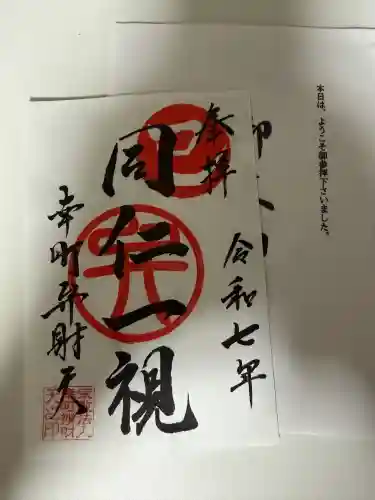 本日は、ようこそ御参拝下さいました。
奉拝
令和七年
同仁一視
幸町弁財天